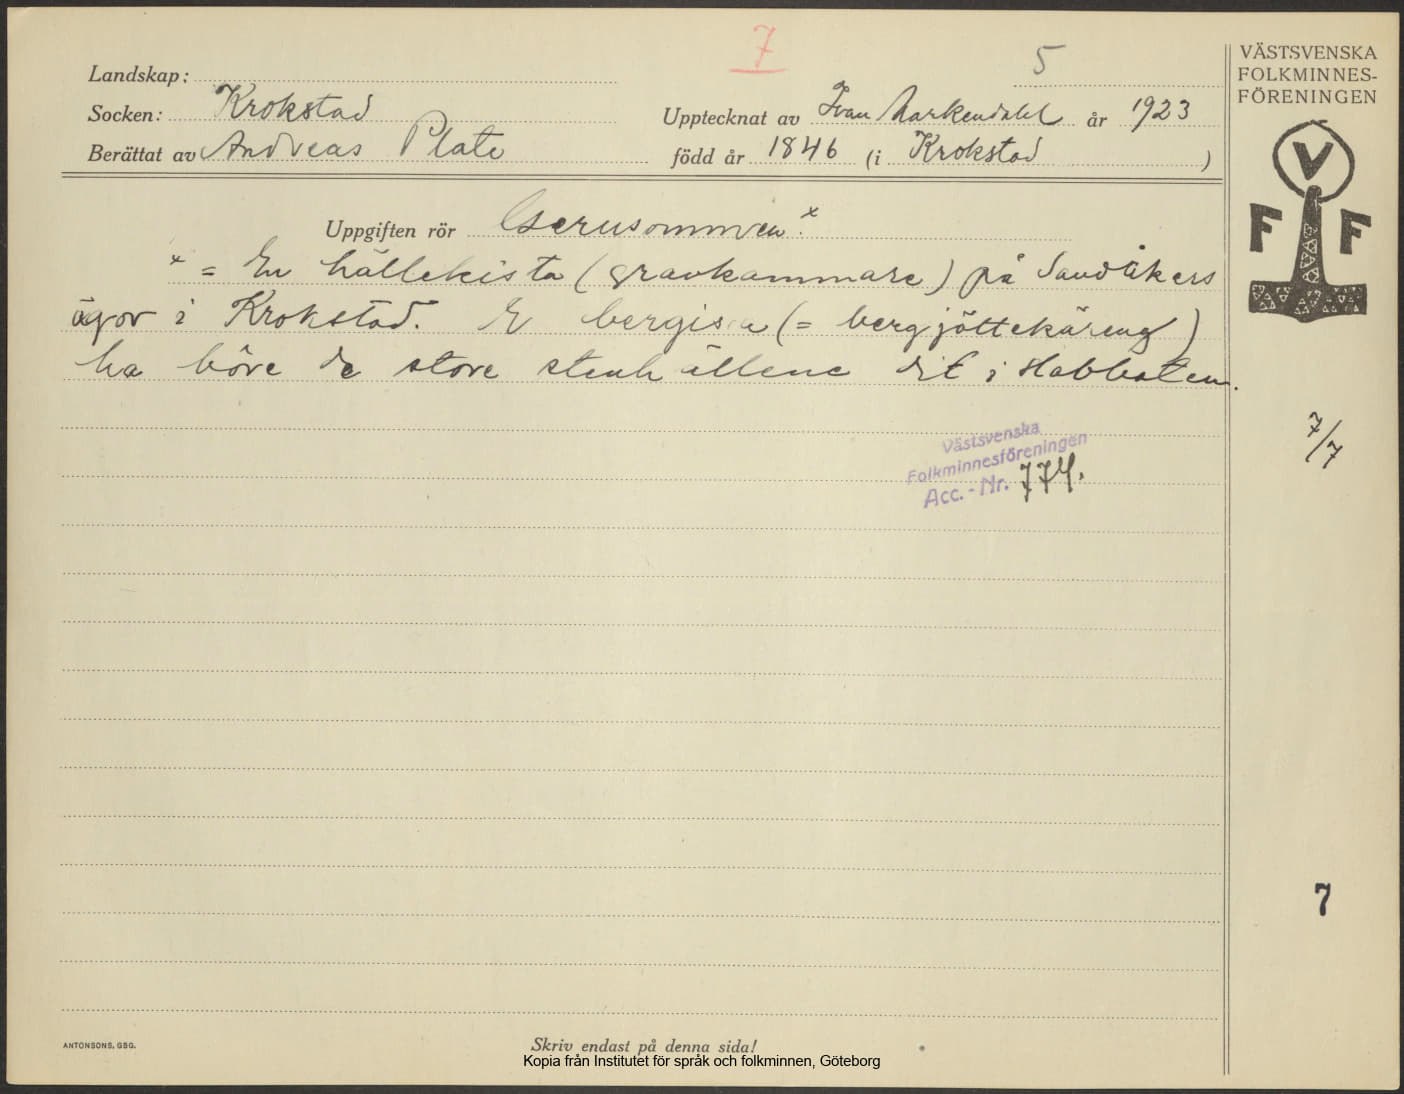 7
5
VÄSTSVENSKA
FOLKMINNES-
FÖRENINGEN
Landskap:
Socken: Krokstad
Upptecknat av Ivan Markendahl år 1923
Berättat av Andreas Plate
född år 1846 (i Krokstad)
V
F F
Uppgiften rör x
x = En hällekista (gravkammare) på Sandåkers
ägor i Krokstad. (= bergjöttekäreng)
ha böre de store stenhällene dit i
7/7
Västsvenska
Folkminnesföreningen
Acc.-Nr. 774.
7
ANTONSONS, GBG.
Skriv endast på denna sida!
Kopia från Institutet för språk och folkminnen, Göteborg